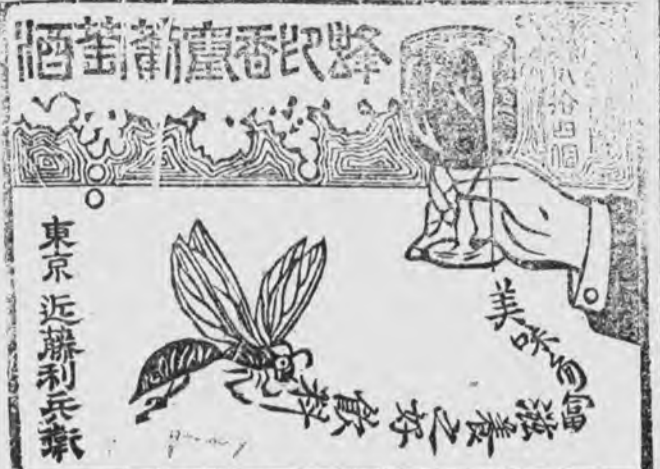 蜂印香竄葡萄酒
美 富滋養之好飲料
東京 近藤利兵衛